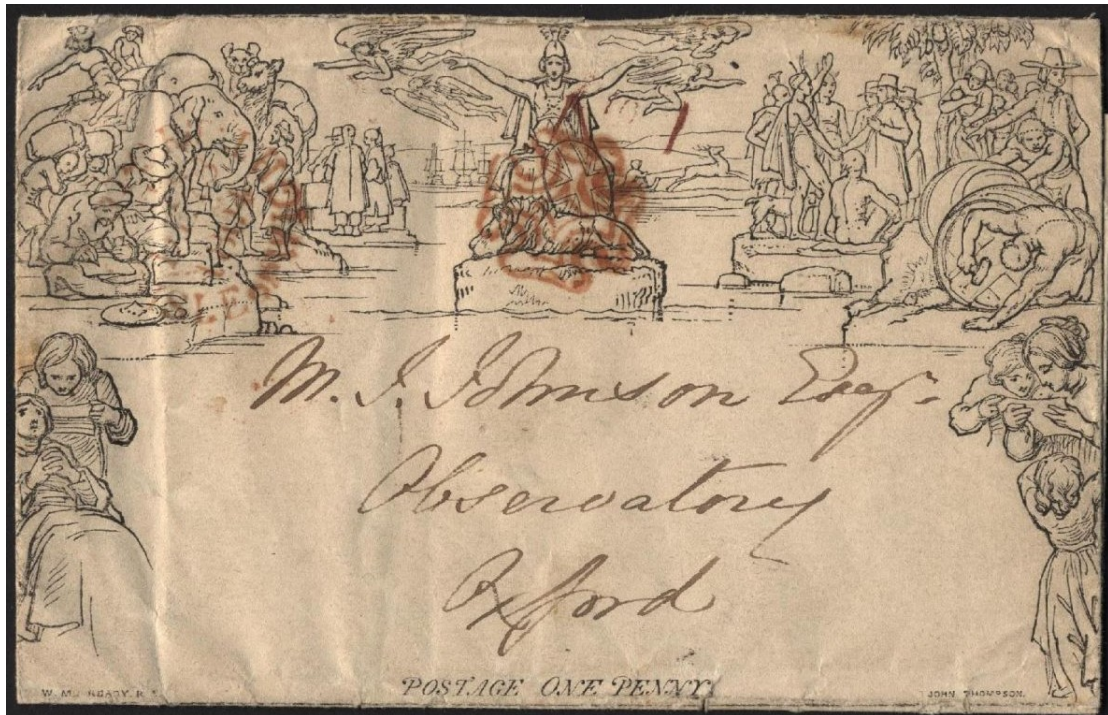 M. J. Johnson Esqr.
Observatory
Oxford
POSTAGE ONE PENNY.
JOHN THOMPSON.